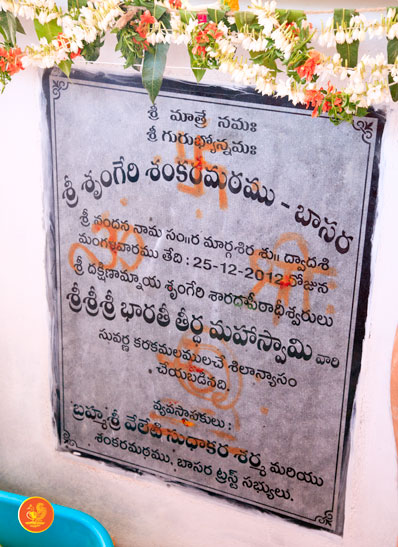 శ్రీ మాత్రే నమః
శ్రీ గురుభ్యోన్నమః
శ్రీ శృంగేరి శంకరమఠము - బాసర
శ్రీ నందన నామ సం॥ర మార్గశిర శు॥ ద్వాదశి
మంగళవారము తేది : 25-12-2012 రోజున
శ్రీ దక్షిణామ్నాయ శృంగేరి శారదాపీఠాధీశ్వరులు
శ్రీశ్రీశ్రీ భారతీ తీర్థ మహాస్వామి వారి
సువర్ణ కరకమలములచే శిలాన్యాసం
చేయబడినది.
వ్యవస్థాపకులు :
బ్రహ్మశ్రీ వేలేటి సుధాకర శర్మ మరియు
శంకరమఠము, బాసర ట్రస్ట్ సభ్యులు.
ఓం
శ్రీః